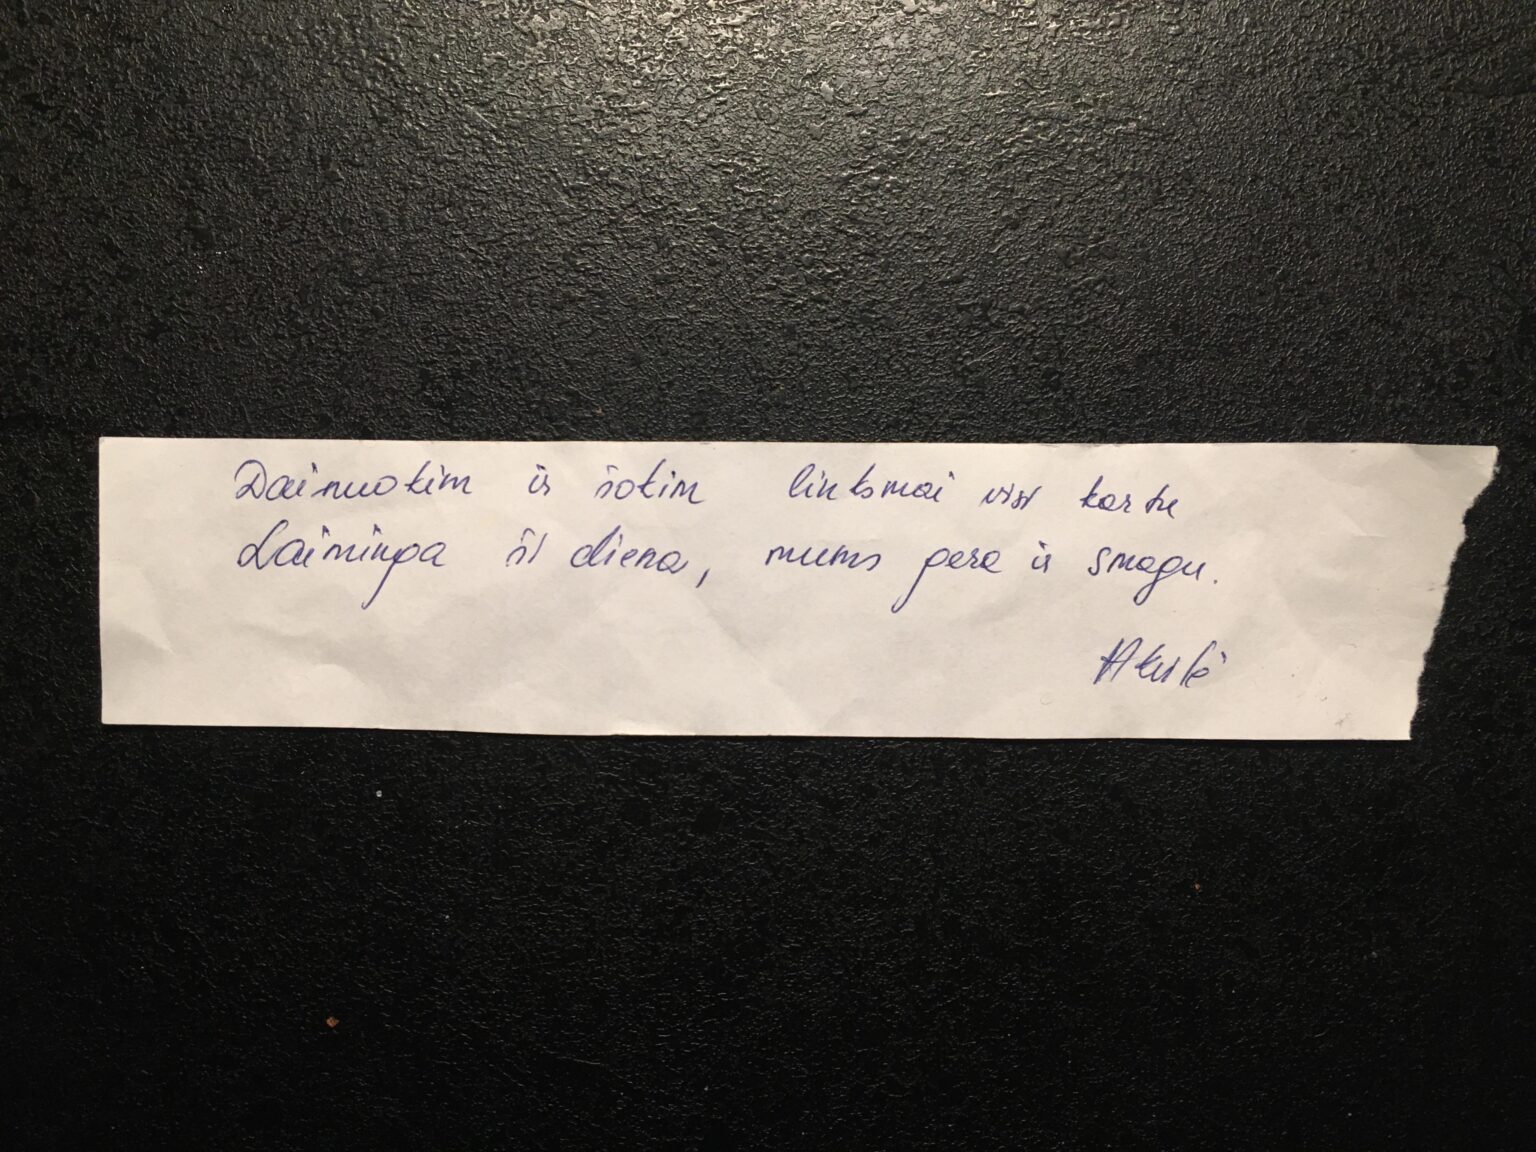 Dainuokim ir šokim linksmai visi kartu
Laiminga ši diena, mums gera ir smagu.